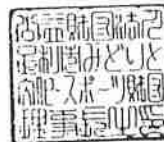 公益財団法人
足利市みどりと
文化・スポーツ財団
理事長之印